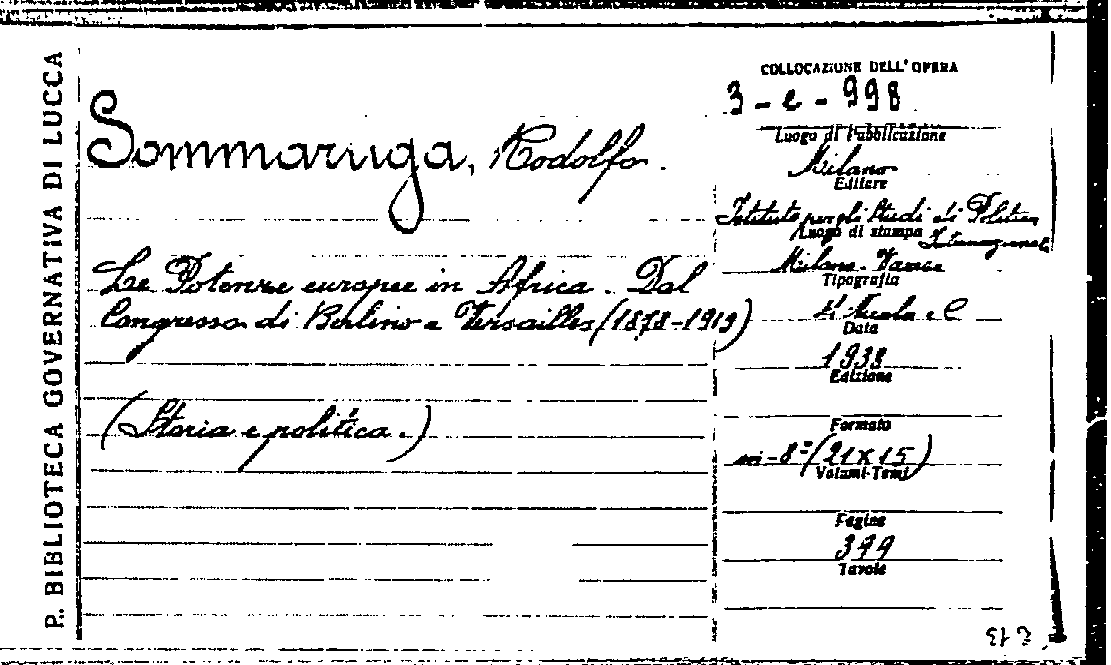 P. BIBLIOTECA GOVERNATIVA DI LUCCA
Sommaruga, Rodolfo.
Le Potenze europee in Africa. Dal
Congresso di Berlino a Versailles (1878-1919)
(Storia e politica.)
COLLOCAZIONE DELL'OPERA
3-e-998
Luogo di Pubblicazione
Milano
Editore
Istituto per gli Studi di Politica
Internazionale
Luogo di stampa
Milano - Varese
Tipografia
Data
1938
Edizione
Formato
in-8º (21x15)
Volumi-Tomi
Pagine
399
Tavole